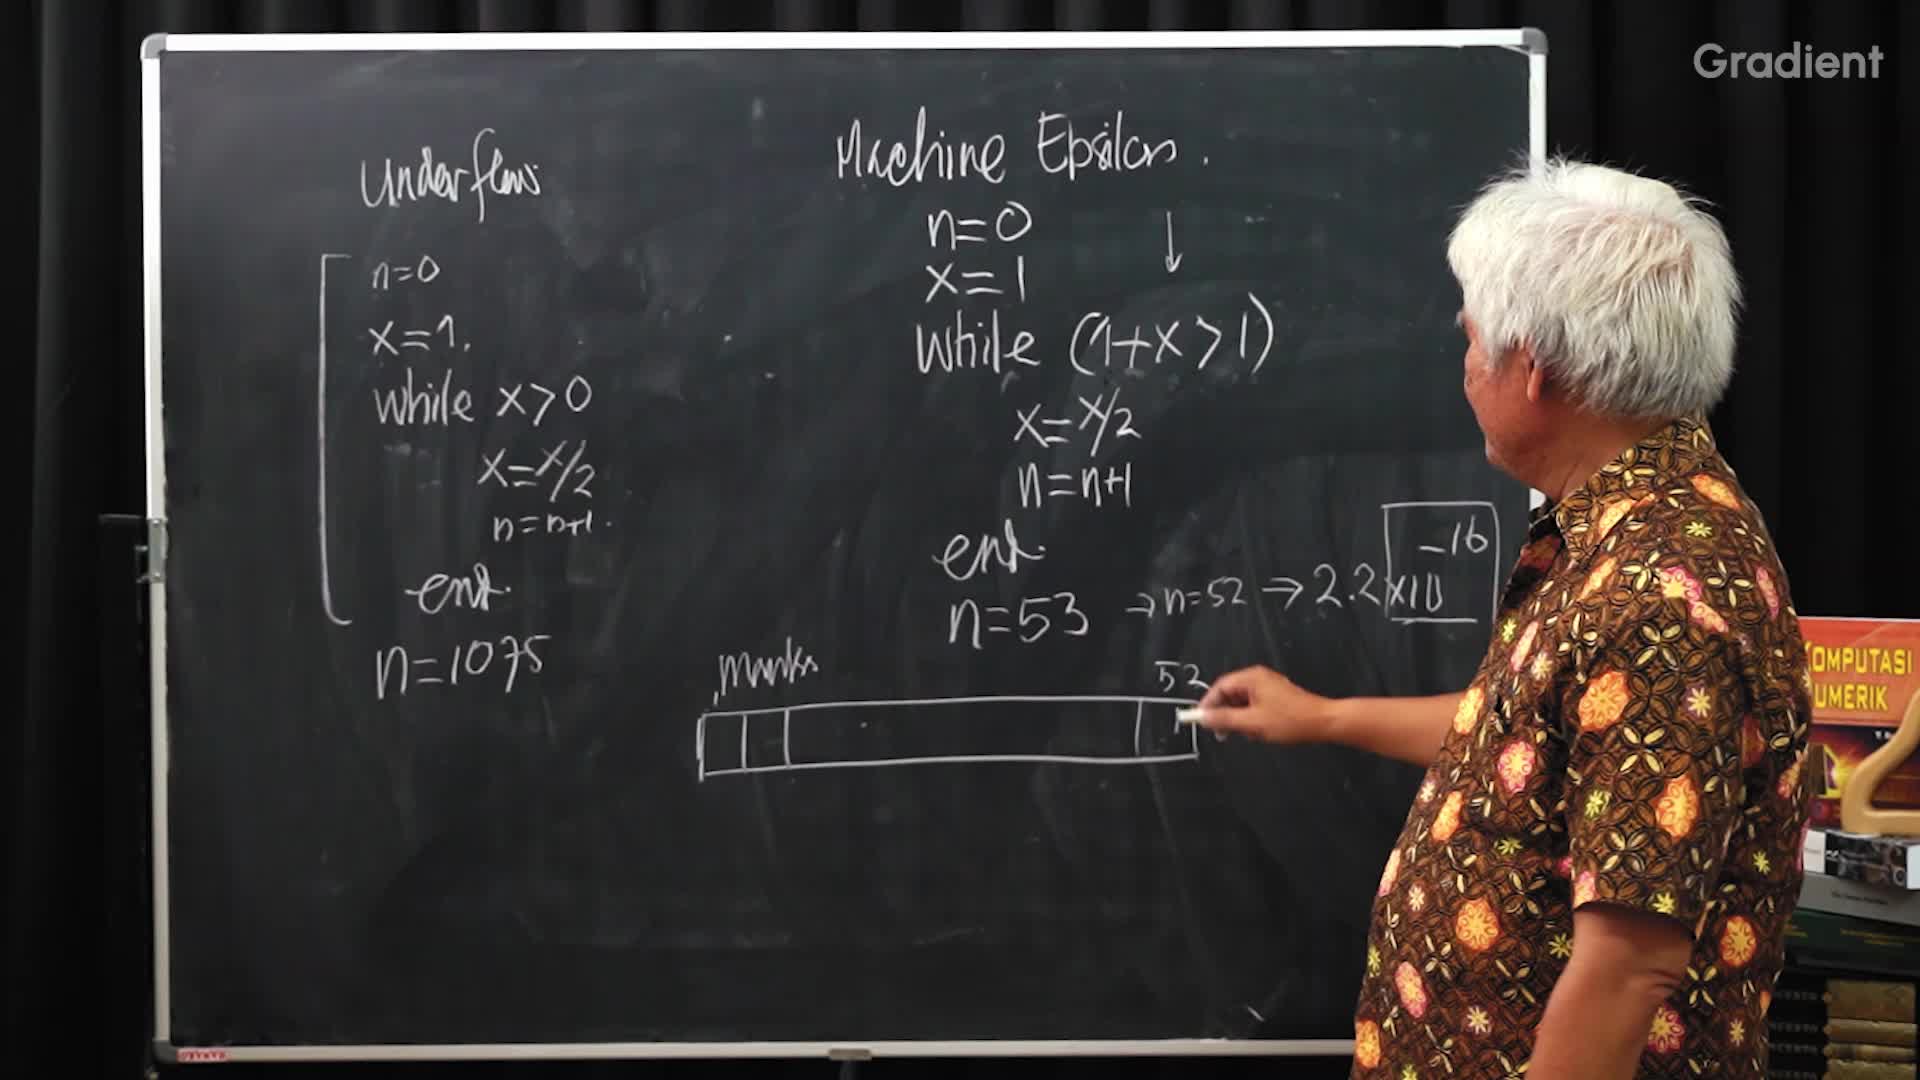 Gradient
Underflow
n=0
x=1.
while x>0
x=x/2
n=n+1.
end.
n=1075
Machine Epsilon.
n=0
x=1
while (1+x>1)
x=x/2
n=n+1
end.
n=53 → n=52 → 2.2 x10^-16
52
KOMPUTASI
NUMERIK